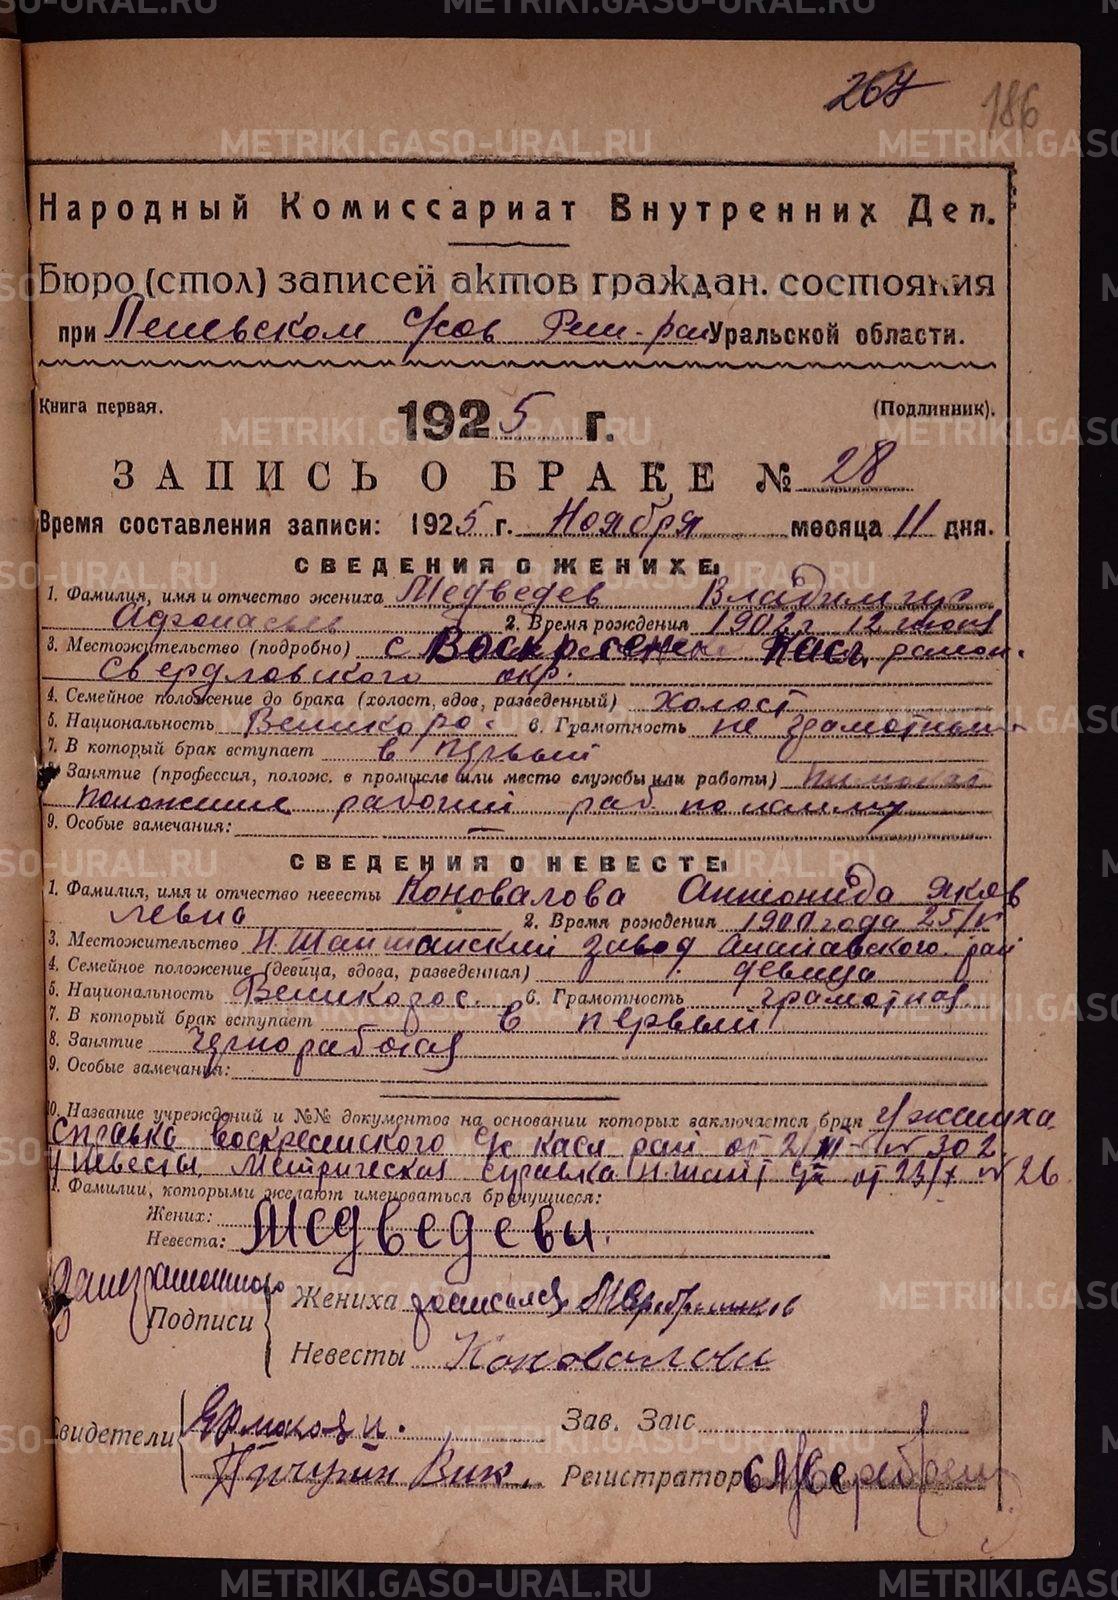 267 186
Народный Комиссариат Внутренних Дел.
Бюро (стол) записей актов граждан. состояния
при Уральской области.
Книга первая. (Подлинник).
1925 г.
ЗАПИСЬ О БРАКЕ № 28
Время составления записи: 1925 г. Ноября месяца 11 дня.
СВЕДЕНИЯ О ЖЕНИХЕ:
1. Фамилия, имя и отчество жениха Медведев Владимир
Афонасьев 2. Время рождения 1902 г 12 июня
3. Местожительство (подробно) с Воскресенск Касл. район.
Свердловского окр.
4. Семейное положение до брака (холост, вдов, разведенный) холост
5. Национальность Великорос 6. Грамотность не грамотный
7. В который брак вступает в первый
8. Занятие (профессия, полож. в промысле или место службы или работы) пимокат
положение рабочий раб по найму
9. Особые замечания: —
СВЕДЕНИЯ О НЕВЕСТЕ:
1. Фамилия, имя и отчество невесты Коновалова Антонида Яков
левна 2. Время рождения 1900 года 25/
3. Местожительство Н. Шайтанский завод Алапаевского рай
4. Семейное положение (девица, вдова, разведенная) девица
5. Национальность Великорос. 6. Грамотность грамотная
7. В который брак вступает в первый
8. Занятие Чернорабочая
9. Особые замечания:
10. Название учреждений и №№ документов на основании которых заключается брак у жениха
справка воскресенского с/с касл рай от 2/ № 302
у невесты Метрическая справка Н. Шайт от 23/X № 26
11. Фамилии, которыми желают именоваться брачущиеся:
Жених:
Невеста: Медведевы.
Подписи
Жениха росписался
Невесты Коновалова
Свидетели
Зав. Загс
Вик.
Регистратор